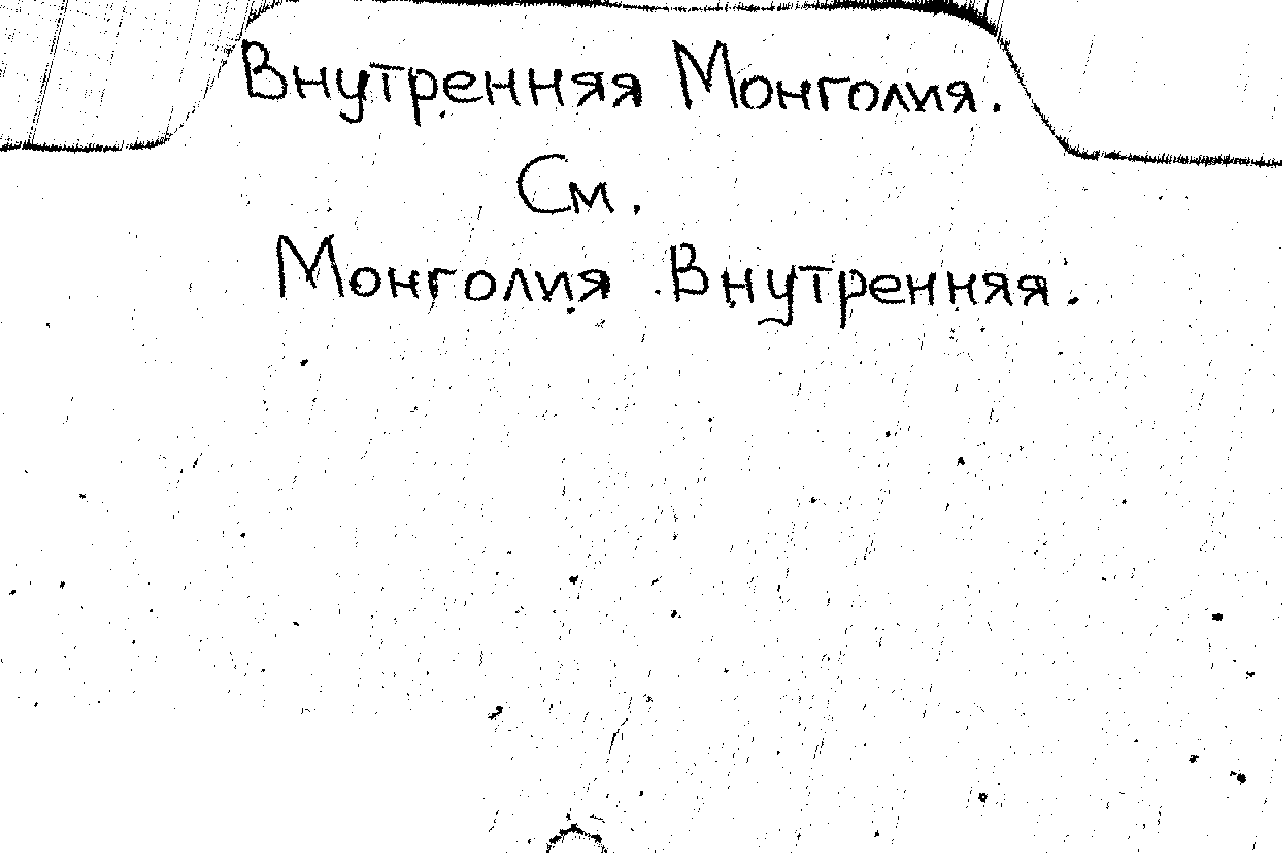 Внутренняя Монголия.
См.
Монголия Внутренняя.